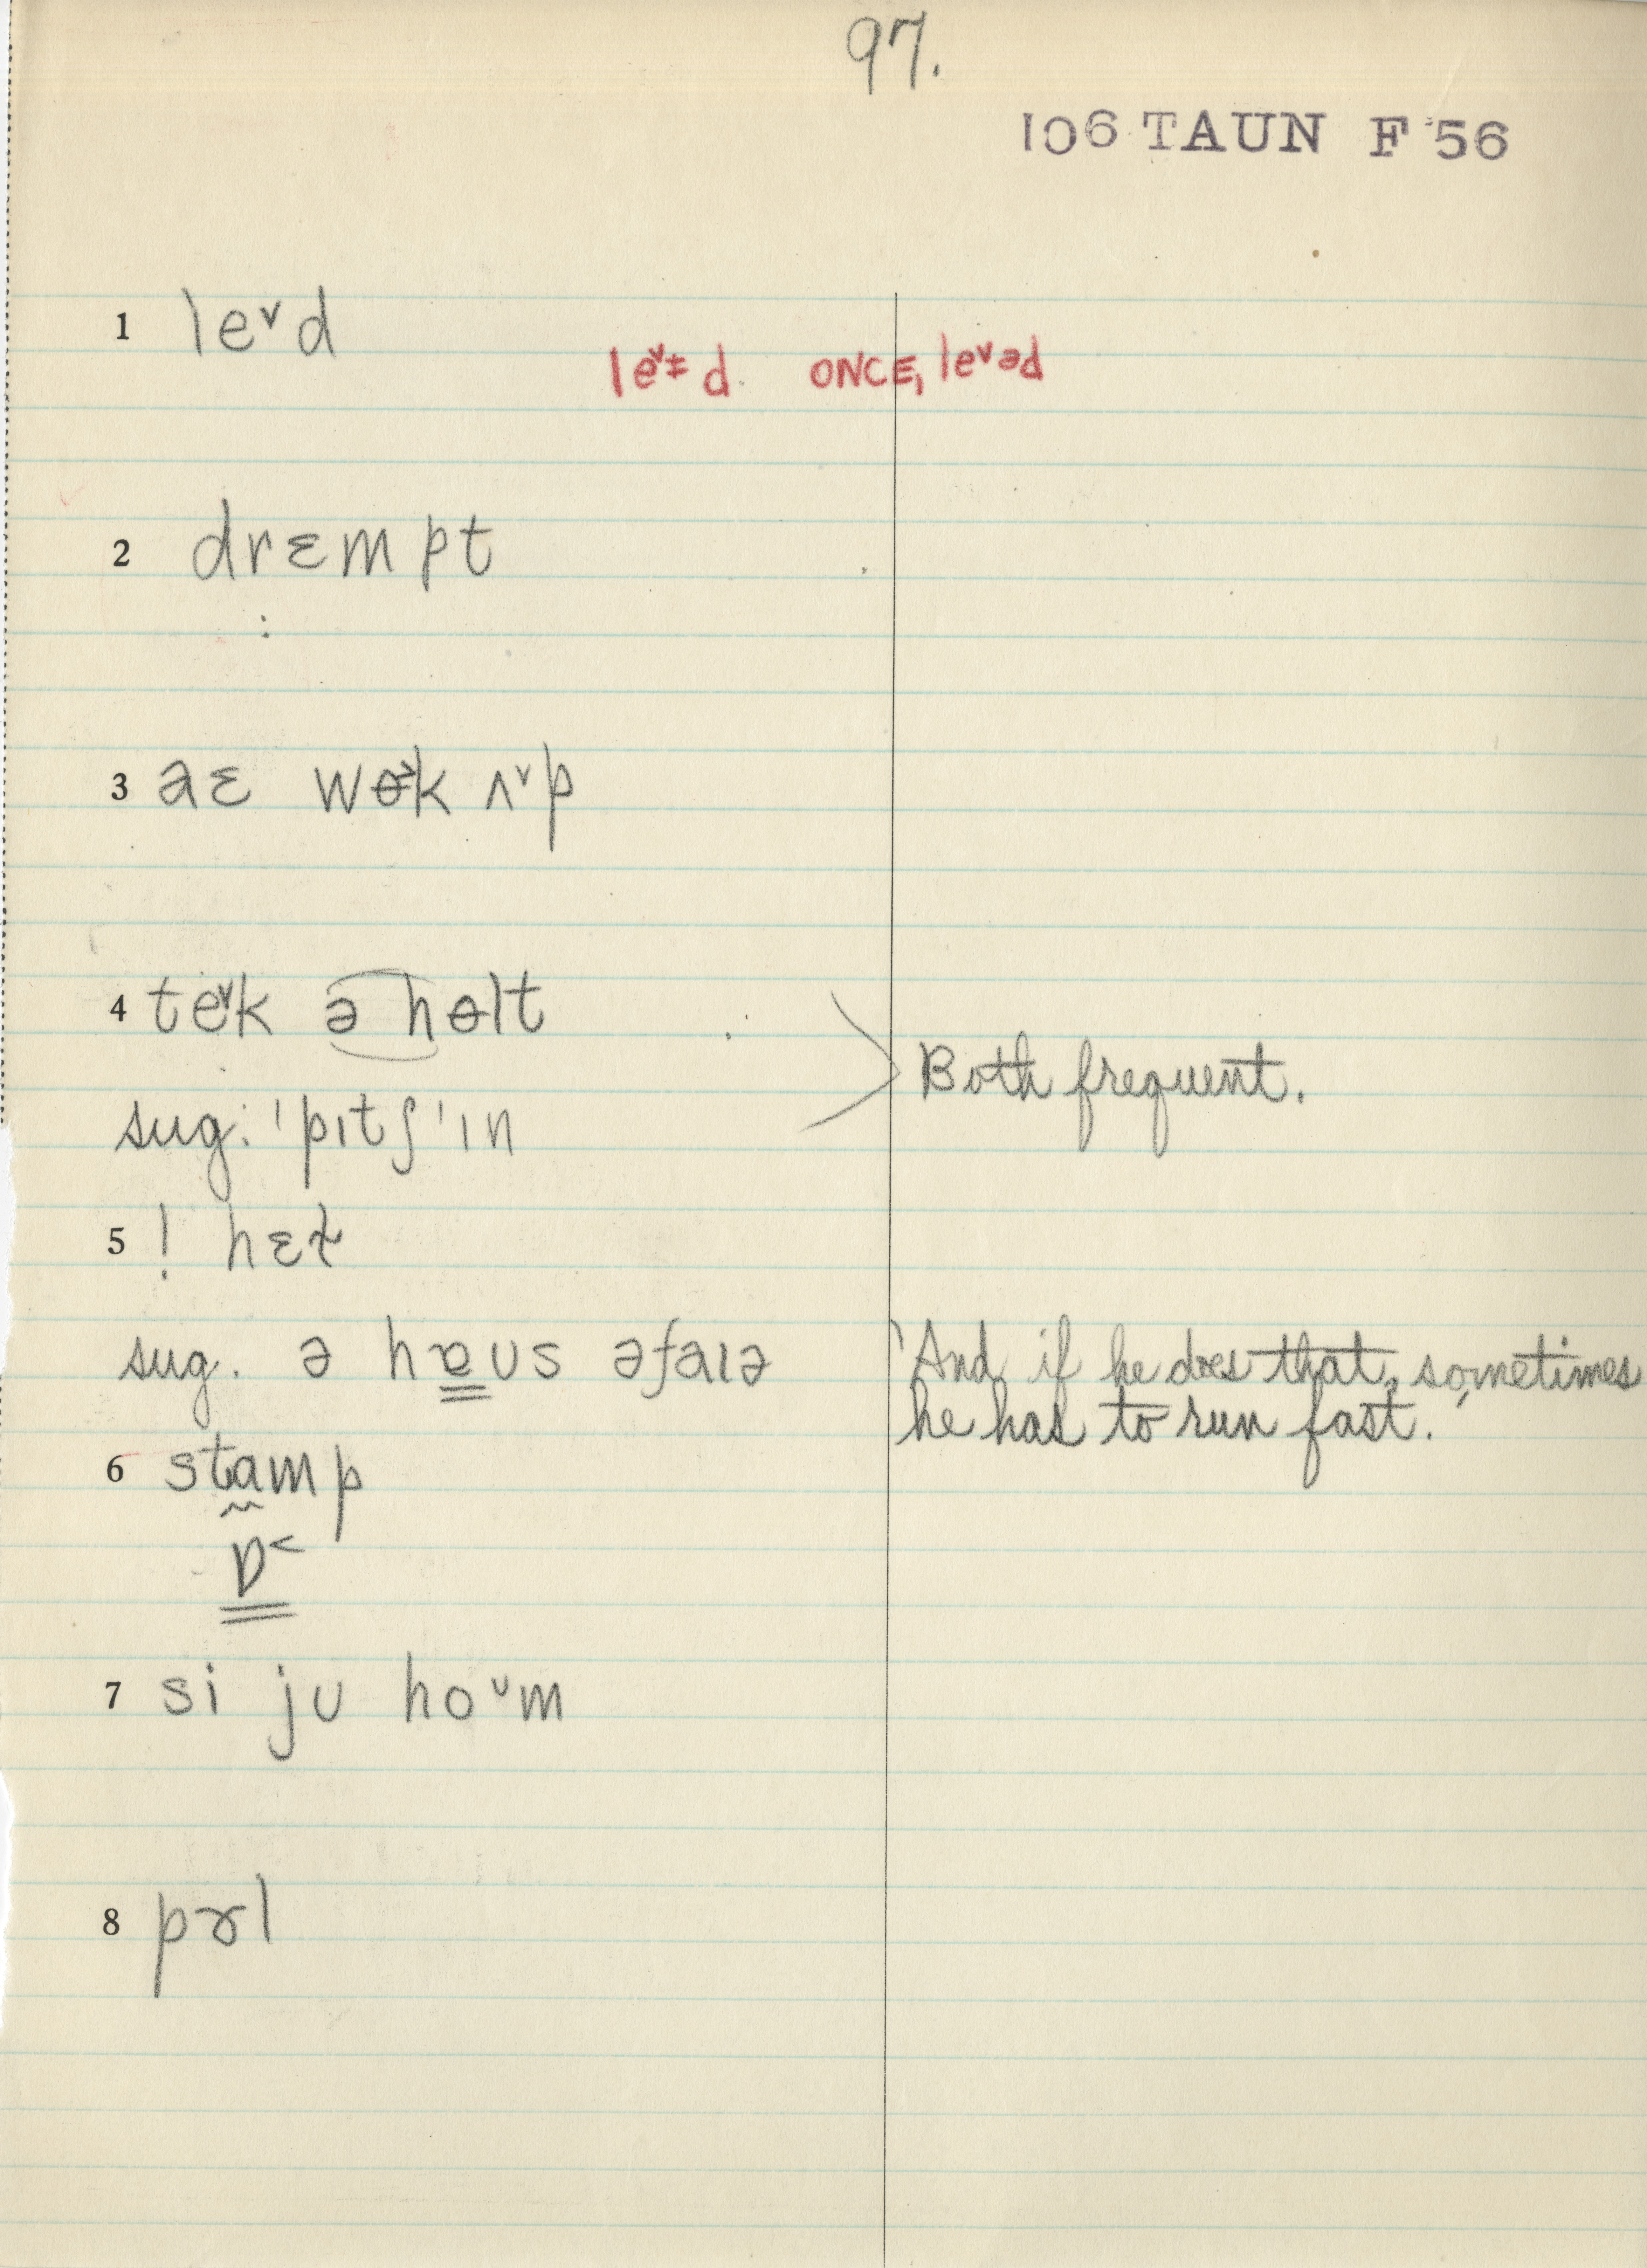 97.
106 TAUN F 56
1 leᵛd
leᵛɨd. ONCE, leᵛəd
2 drɛmpt
3 aɛ wɵ˃k ʌᵛp
4 teᵛk ə hɵlt
Both frequent.
sug: 'pɪtʃ'ɪn
5 ! hɛt
sug. ə hɐʊs əfaɪə
'And if he does that, sometimes
he has to run fast.'
6 stamp
ɒ˂
7 si ju hoᶷm
8 pɚl